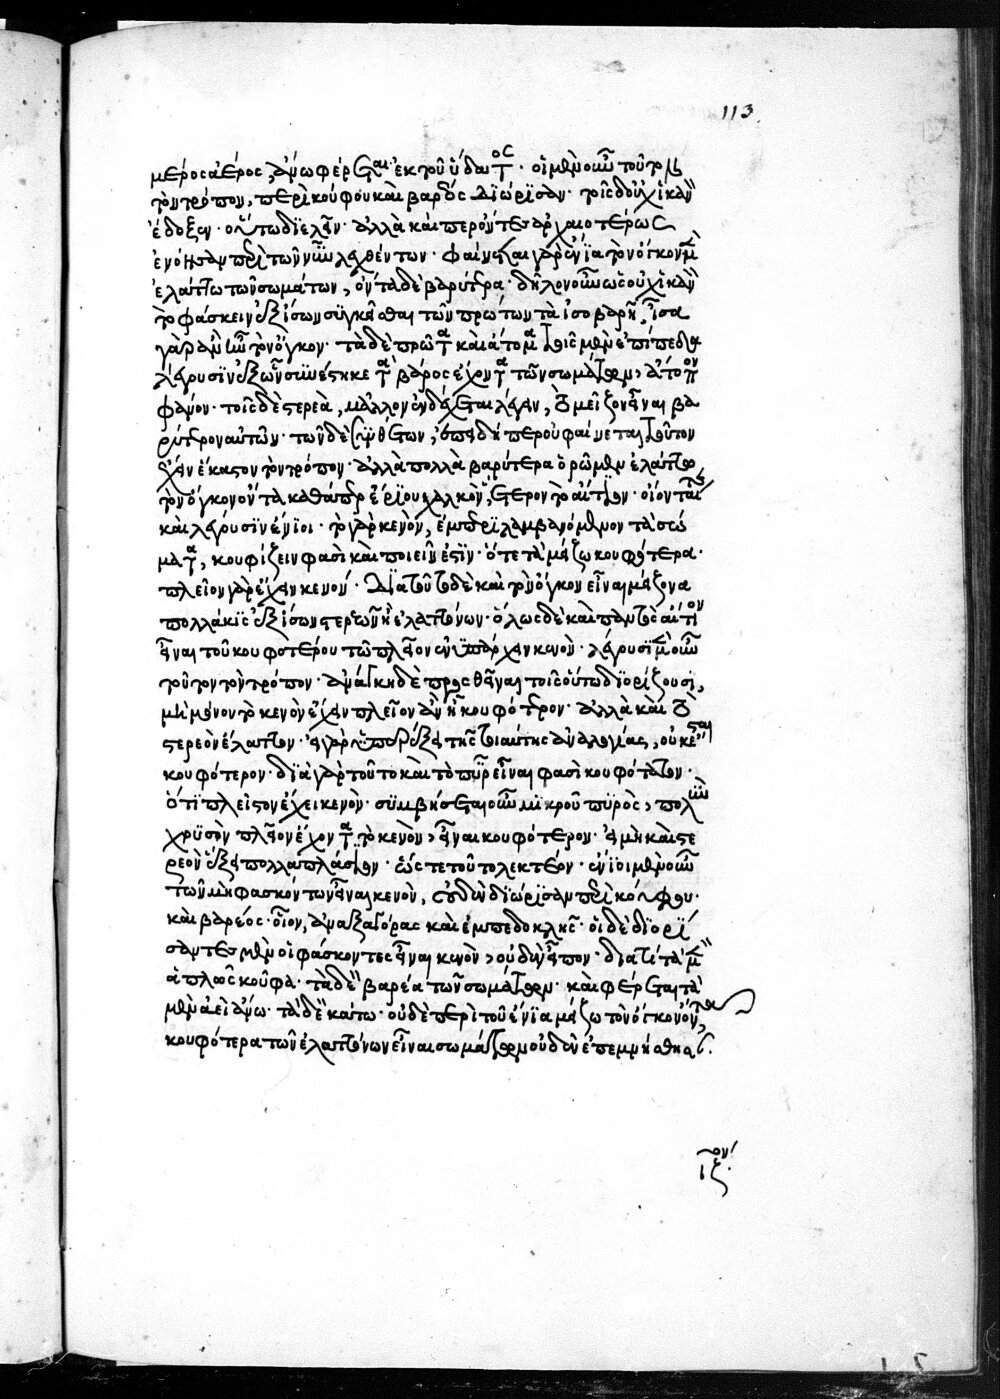 113
μέρος ἀέρος, ἄνω φέρεται ἐκ τοῦ ὕδατος· οἱ μὲν οὖν τοῦτον
τὸν τρόπον, περὶ κούφου καὶ βαρέος διώρισαν· τοῖς δ' οὐχ ἱκανὸν
ἔδοξεν οὕτω διελεῖν· ἀλλὰ καίπερ ὄντες ἀρχαιοτέρως
ἐνόησαν περὶ τῶν νῦν λεχθέντων· φαίνεται γὰρ ἔνια τὸν ὄγκον μὲν
ἐλάττω τῶν σωμάτων, ὄντα δὲ βαρύτερα· δῆλον οὖν ὡς οὐχ ἱκανὸν
τὸ φάσκειν ἐξ ἴσων συγκεῖσθαι τῶν πρώτων τὰ ἰσοβαρῆ, ἴσα
γὰρ ἂν ἦν τὸν ὄγκον· τὰ δὲ πρῶτα καὶ ἄτομα τοῖς μὲν ἐπίπεδα
λέγουσιν ἐξ ὧν συνέστηκε τὰ βάρος ἔχοντα τῶν σωμάτων, ἄτοπον
φάναι· τοῖς δὲ στερεὰ, μᾶλλον ἐνδέχεται λέγειν, τὸ μεῖζον εἶναι βα
ρύτερον αὐτῶν· τῶν δὲ συνθέτων, ἐπειδήπερ οὐ φαίνεται τοῦτον
ἔχειν ἕκαστον τὸν τρόπον· ἀλλὰ πολλὰ βαρύτερα ὁρῶμεν ἐλάττω
τὸν ὄγκον ὄντα καθάπερ ἐρίου χαλκὸν, ἕτερον τὸ αἴτιον· οἴονταί
καὶ λέγουσιν ἔνιοι· τὸ γὰρ κενὸν, ἐμπεριλαμβανόμενον τὰ σώ
ματα, κουφίζειν φασὶ καὶ ποιεῖν ἔστιν ὅτε τὰ μείζω κουφότερα·
πλεῖον γὰρ ἔχειν κενόν· διὰ τοῦτο δὲ καὶ τὸν ὄγκον εἶναι μείζονα
πολλάκις ἐξ ἴσων στερεῶν ἢ ἐλαττόνων· ὅλως δὲ καὶ παντὸς αἴτιον
εἶναι τοῦ κουφοτέρου τὸ πλεῖον ἐνυπάρχειν κενὸν· λέγουσι μὲν οὖν
τοῦτον τὸν τρόπον· ἀνάγκη δὲ προσθεῖναι τοῖς οὕτω διορίζουσι,
μὴ μόνον τὸ κενὸν ἔχειν πλεῖον ἂν ᾖ κουφότερον· ἀλλὰ καὶ τὸ
στερεὸν ἔλαττον· εἰ γὰρ ὑπερέξει τῆς τοιαύτης ἀναλογίας, οὐκ ἔσται
κουφότερον· διὰ γὰρ τοῦτο καὶ τὸ πῦρ εἶναι φασὶ κουφότατον·
ὅτι πλεῖστον ἔχει κενὸν· συμβήσεται οὖν μικροῦ πυρὸς, πολὺν
χρυσὸν πλεῖον ἔχοντα τὸ κενὸν, εἶναι κουφότερον· εἰ μὴ καὶ στε
ρεὸν ἕξει πολλαπλάσιον· ὥστε τοῦτο λεκτέον· ἔνιοι μὲν οὖν
τῶν μὴ φασκόντων εἶναι κενὸν, οὐδὲν διώρισαν περὶ κούφου·
καὶ βαρέος· οἷον, ἀναξαγόρας καὶ ἐμπεδοκλῆς· οἱ δὲ διορί
σαντες μὲν οἱ φάσκοντες εἶναι κενὸν, οὐδὲν εἶπον· διὰ τί τὰ μὲν
ἁπλῶς κοῦφα· τὰ δὲ βαρέα τῶν σωμάτων· καὶ φέρεται τὰ
μὲν ἀεὶ ἄνω· τὰ δὲ κάτω· οὐδὲ περὶ τοῦ ἔνια μείζω τὸν ὄγκον ὄντα
κουφότερα τῶν ἐλαττόνων εἶναι σωμάτων οὐδὲν ἐπεμνήσθησαν.